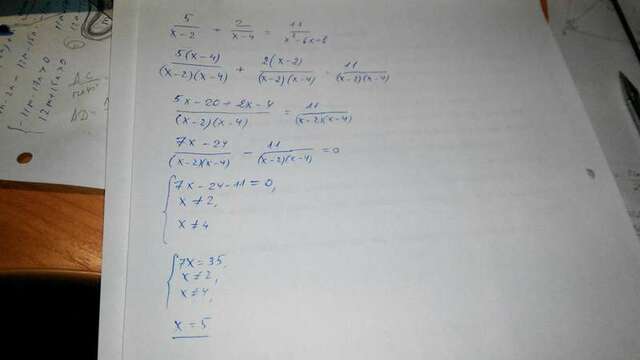 5/(x-2) + 2/(x-4) = 11/(x²-6x-8)
5(x-4)/((x-2)(x-4)) + 2(x-2)/((x-2)(x-4)) = 11/((x-2)(x-4))
(5x-20+2x-4)/((x-2)(x-4)) = 11/((x-2)(x-4))
(7x-24)/((x-2)(x-4)) - 11/((x-2)(x-4)) = 0
{7x-24-11=0,
x≠2,
x≠4
{7x=35,
x≠2,
x≠4,
x=5